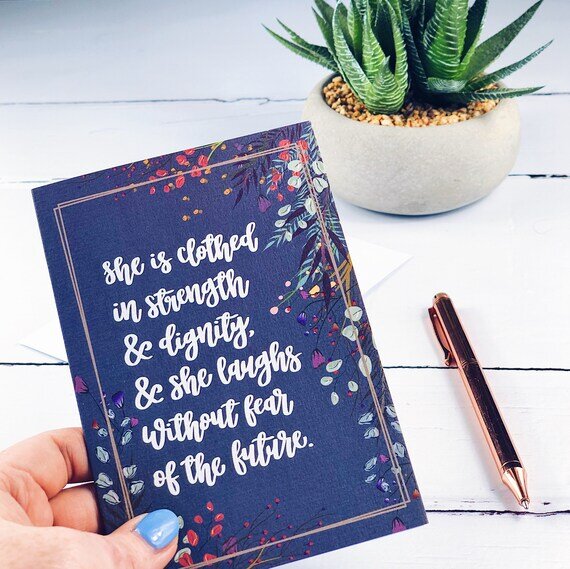 she is clothed
in strength
& dignity,
& she laughs
without fear
of the future.